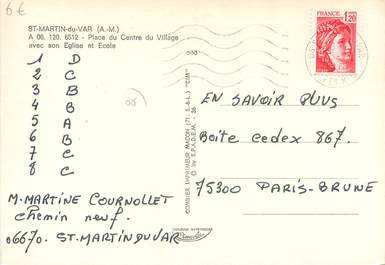 6€
ST-MARTIN-du-VAR (A.-M.)
A 06. 120. 6512 - Place du Centre du Village
avec son Eglise et Ecole
1 D
2 C
3 B
4 B
5 A
6 B
7 C
8 C
06
M. MARTINE COURNOLLET
chemin neuf.
06670. ST. MARTIN DU VAR
COMBIER IMPRIMEUR MACON (71. S.-&-L.) "CIM"
© by S.P.A.D.E.M. - 36
FRANCE
1,20
EN SAVOIR PLUS
BOITE CEDEX 867.
75300 PARIS-BRUNE